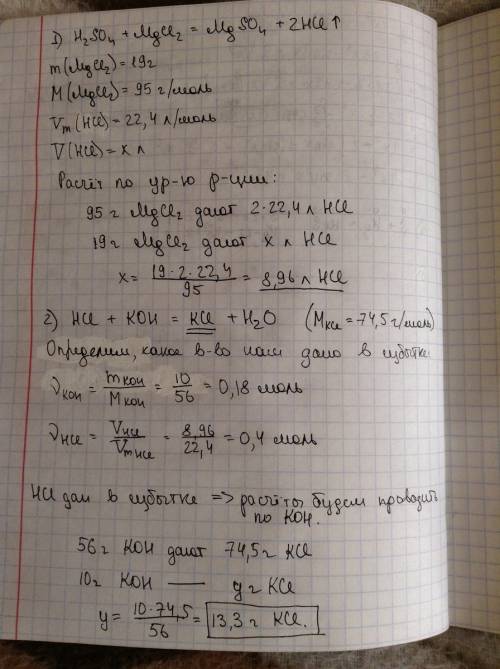 1) H₂SO₄ + MgCl₂ = MgSO₄ + 2HCl↑
m(MgCl₂) = 19г
M(MgCl₂) = 95 г/моль
Vm(HCl) = 22,4 л/моль
V(HCl) = x л
Расчёт по ур-ю р-ции:
95 г MgCl₂ дают 2·22,4 л HCl
19г MgCl₂ дают x л HCl
x = 19·2·22,4 / 95 = 8,96 л HCl
2) HCl + KOH = KCl + H₂O (M KCl = 74,5 г/моль)
Определим, какое в-во нам дано в избытке
ν KOH = m KOH / M KOH = 10/56 = 0,18 моль
ν HCl = V HCl / Vm HCl = 8,96/22,4 = 0,4 моль
HCl дан в избытке => расчёты будем проводить
по KOH.
56г KOH дают 74,5г KCl
10г KOH — y г KCl
y = 10·74,5 / 56 = 13,3 г KCl.